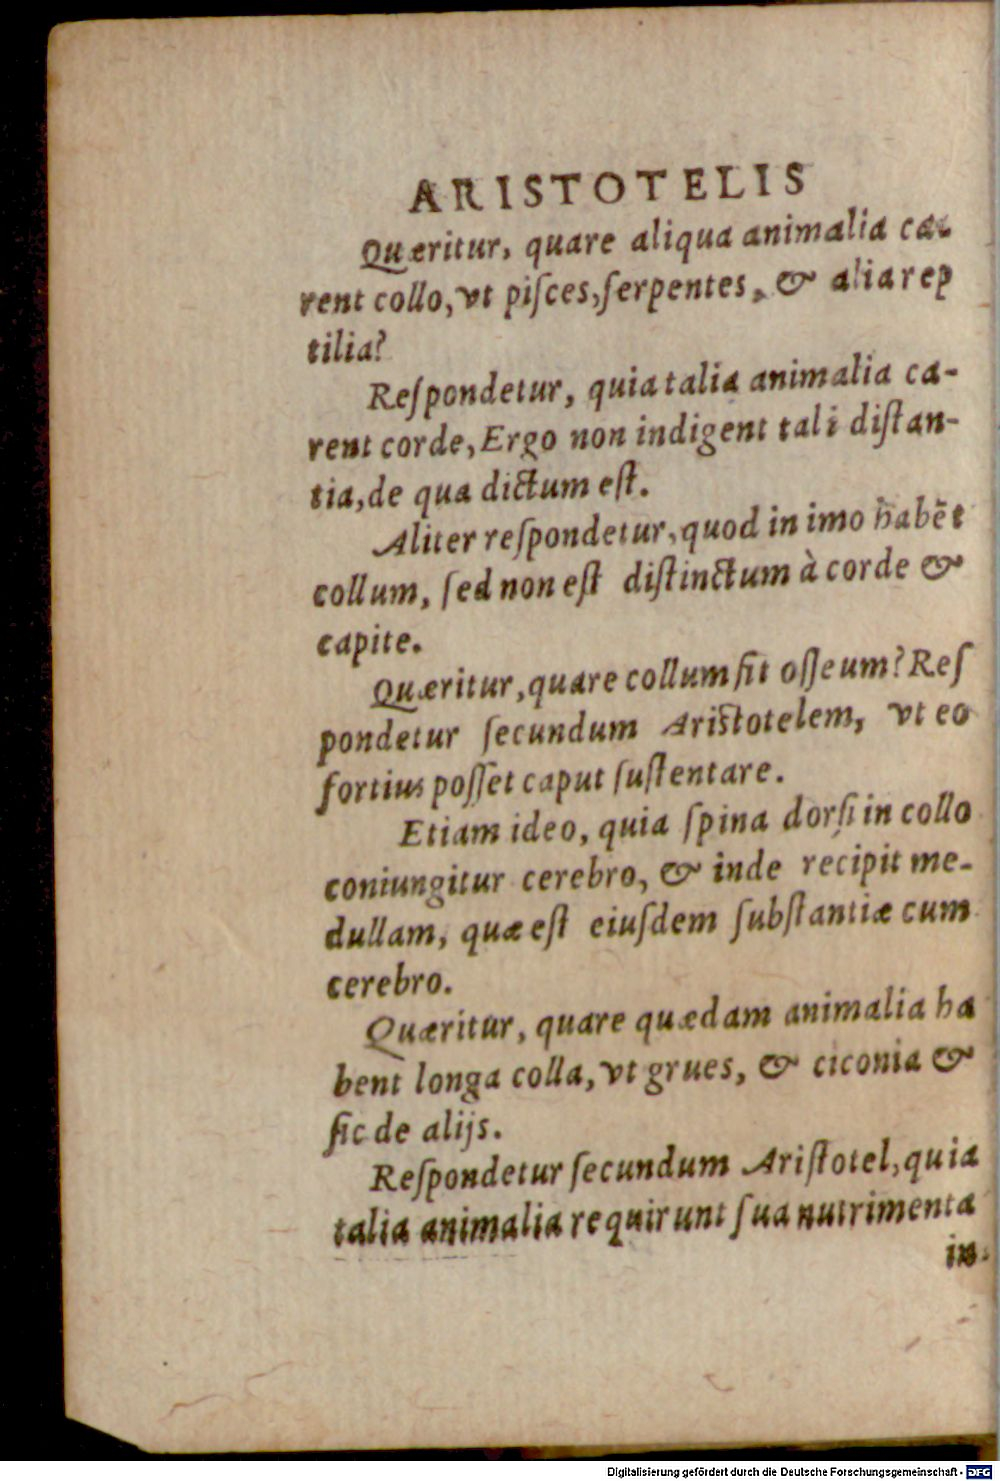 ARISTOTELIS
Quæritur, quare aliqua animalia ca-
rent collo, vt piſces, ſerpentes, & alia rep
tilia?
Reſpondetur, quia talia animalia ca-
rent corde, Ergo non indigent tali diſtan-
tia, de qua dictum eſt.
Aliter reſpondetur, quod in imo habēt
collum, ſed non eſt diſtinctum à corde &
capite.
Quæritur, quare collum ſit oſſeum? Reſ
pondetur ſecundum Aristotelem, vt eo
fortius poſſet caput ſuſtentare.
Etiam ideo, quia ſpina dorſi in collo
coniungitur cerebro, & inde recipit me-
dullam, quæ eſt eiuſdem ſubſtantiæ cum
cerebro.
Quæritur, quare quædam animalia ha
bent longa colla, vt grues, & ciconia &
ſic de alijs.
Reſpondetur ſecundum Ariſtotel, quia
talia animalia requirunt ſua nutrimenta
in
Digitalisierung gefördert durch die Deutsche Forschungsgemeinschaft - DFG